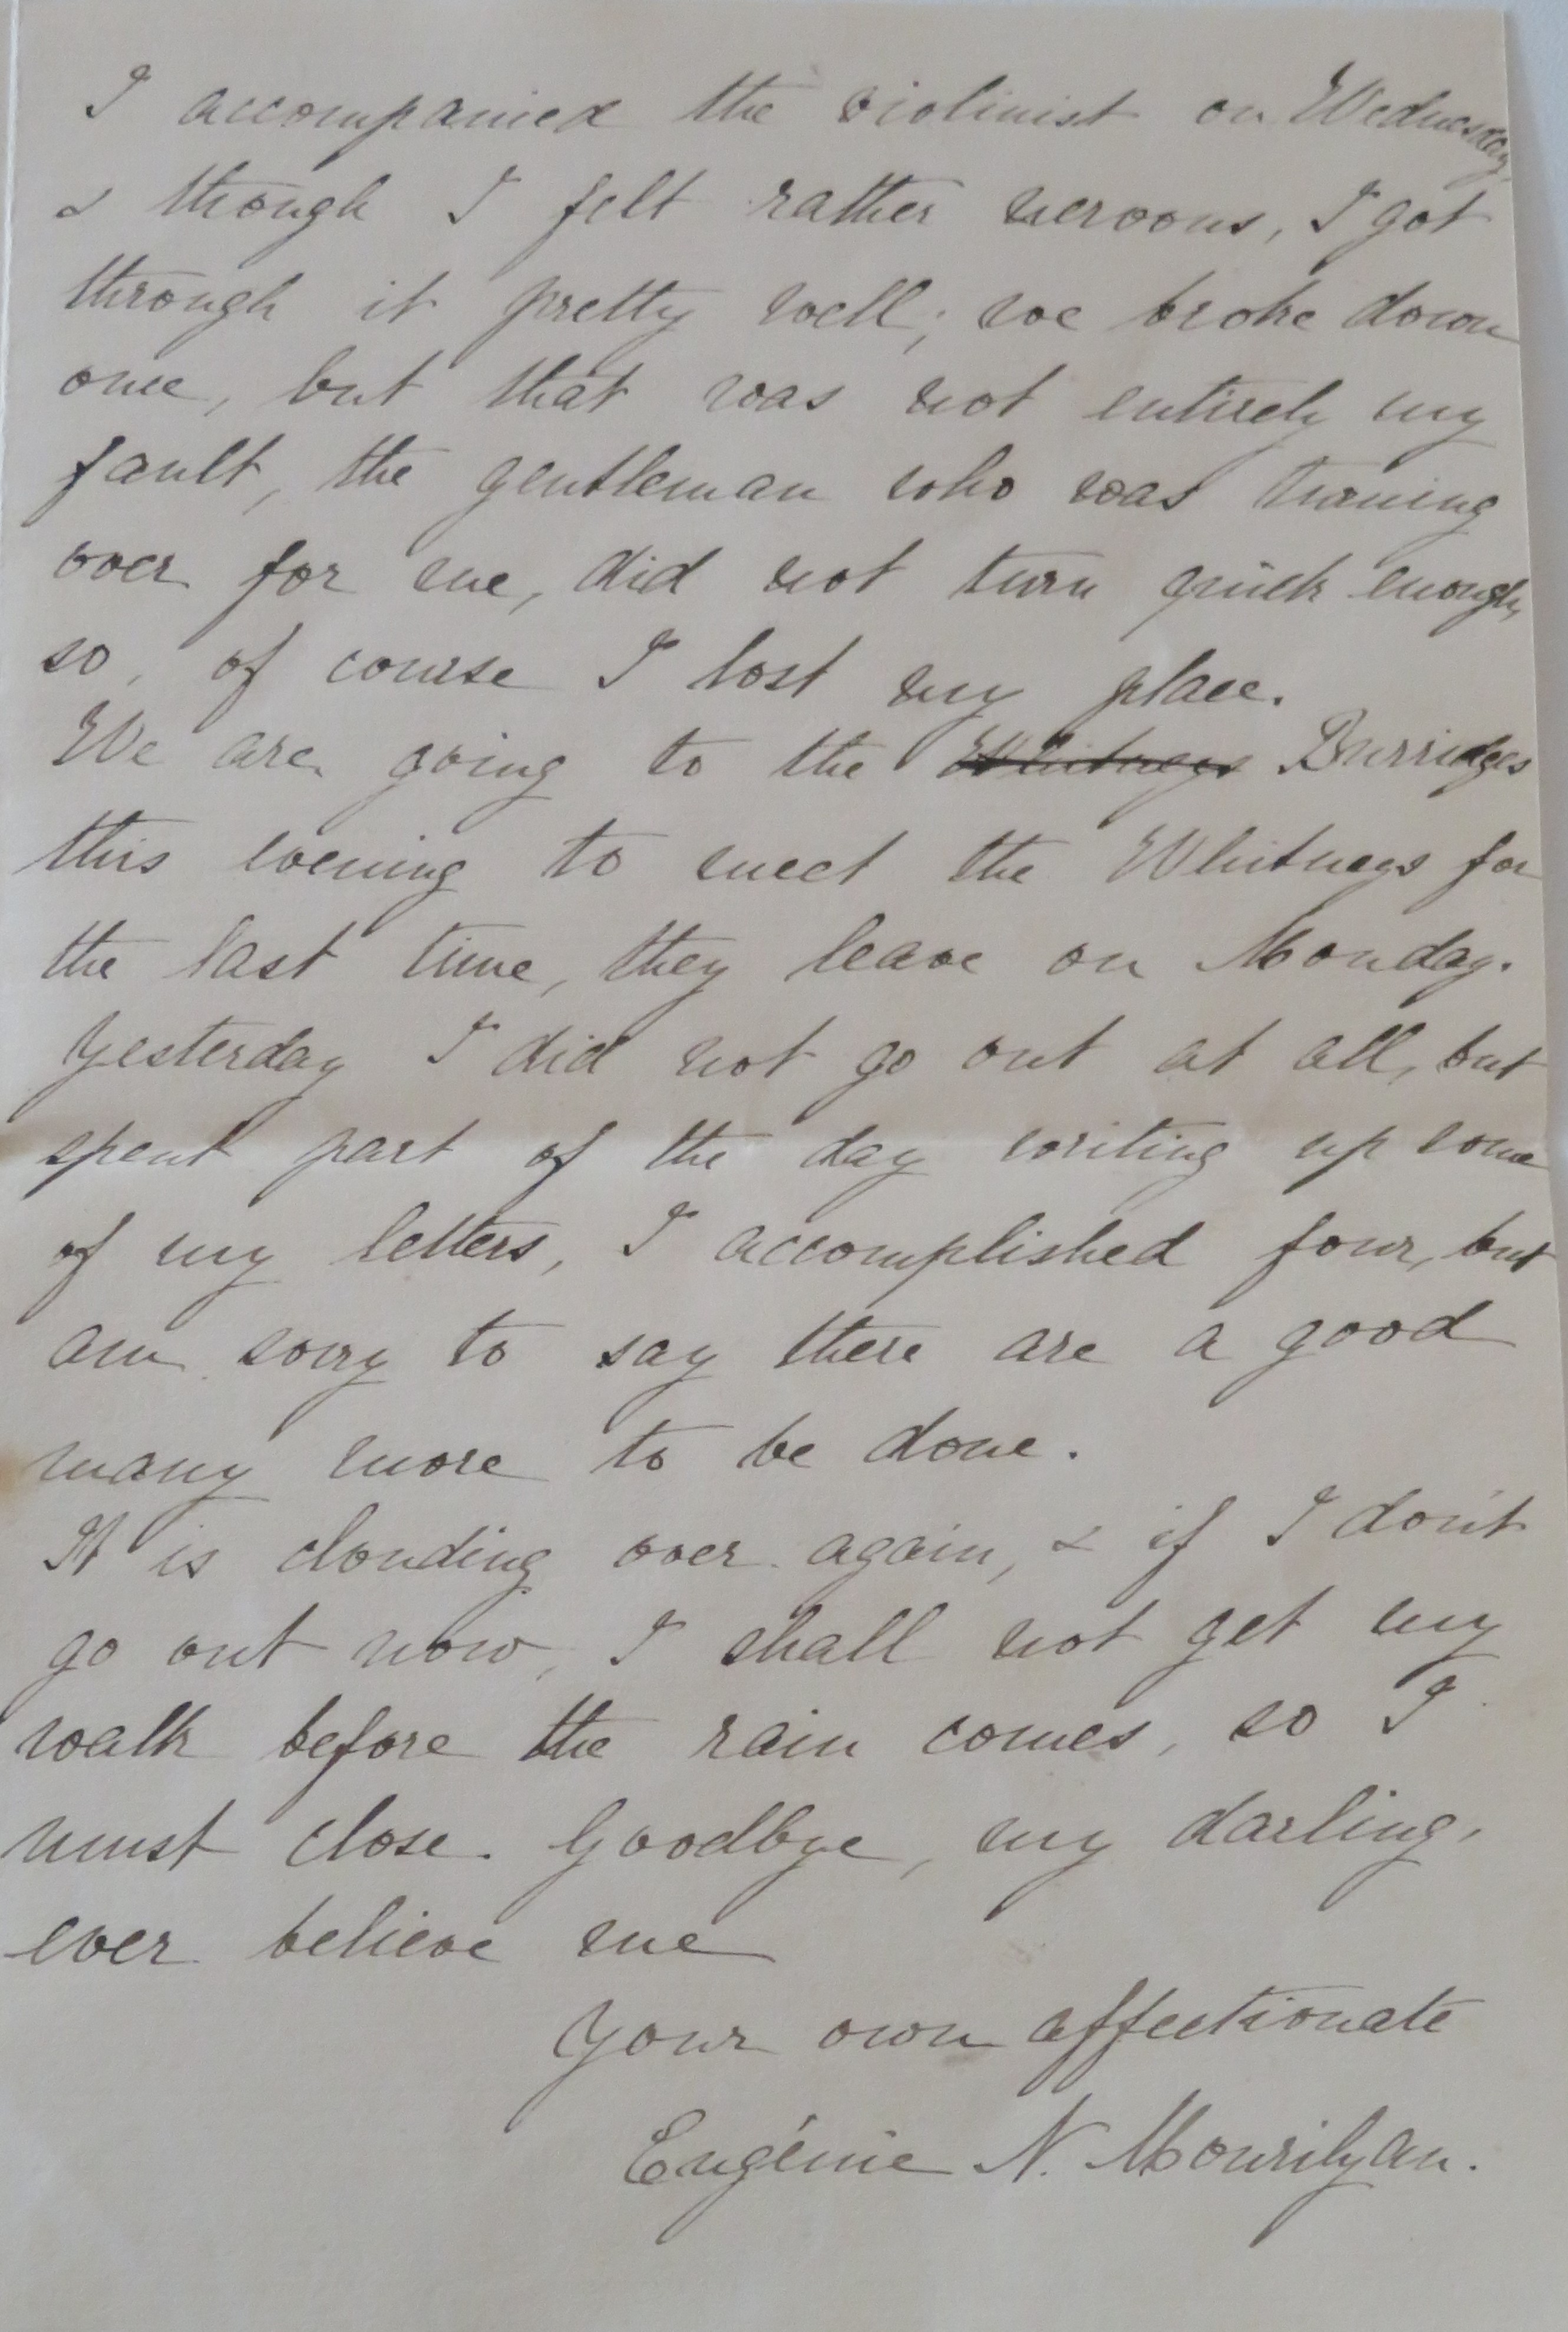 I accompanied the violinist on Wednesday
& though I felt rather nervous, I got
through it pretty well; we broke down
once, but that was not entirely my
fault, the gentleman who was turning
over for me, did not turn quick enough,
so, of course I lost my place.
We are going to the Whitneys Burridges
this evening to meet the Whitneys for
the last time, they leave on Monday.
Yesterday I did not go out at all, but
spent part of the day writing up some
of my letters, I accomplished four, but
am sorry to say there are a good
many more to be done.
It is clouding over again, & if I don't
go out now, I shall not get my
walk before the rain comes, so I
must close. Goodbye, my darling,
ever believe me
Your own affectionate
Eugénie N. Mourilyan.